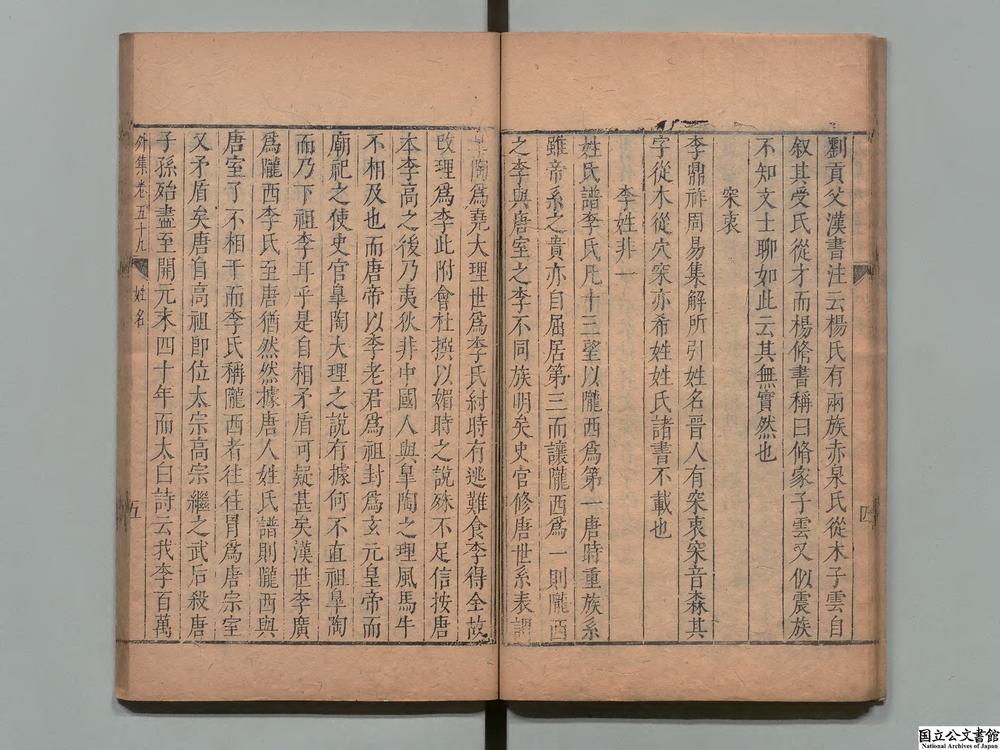 劉貢父漢書注云楊氏有兩族赤泉氏從木子雲自
叙其受氏從才而楊脩書稱曰脩家子雲又似震族
不知文士聊如此云其無實然也
罙衷
李鼎祚周易集解所引姓名晉人有罙衷罙音森其
字從木從穴罙亦希姓姓氏諸書不載也
李姓非一
姓氏譜李氏凡十三望以隴西爲第一唐時重族系
雖帝系之貴亦自屈居第三而讓隴西爲一則隴西
之李與唐室之李不同族明矣史官修唐世系表謂
陶爲堯大理世爲李氏紂時有逃難食李得全故
改理爲李此附會杜撰以媚時之說殊不足信按唐
本李高之後乃夷狄非中國人與皐陶之理風馬牛
不相及也而唐帝以李老君爲祖封爲玄元皇帝而
廟祀之使史官皐陶大理之說有據何不直祖皐陶
而乃下祖李耳乎是自相矛盾可疑甚矣漢世李廣
爲隴西李氏至唐猶然然據唐人姓氏譜則隴西與
唐室了不相干而李氏稱隴西者往往冒爲唐宗室
又矛盾矣唐自高祖卽位太宗高宗繼之武后殺唐
子孫殆盡至開元末四十年而太白詩云我李百萬
外集卷五十九 姓名
五
四
国立公文書館
National Archives of Japan